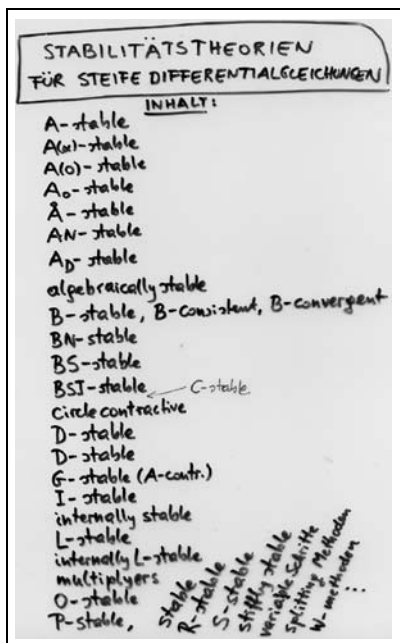 STABILITÄTSTHEORIEN
FÜR STEIFE DIFFERENTIALGLEICHUNGEN
INHALT:
A-stable
A(α)-stable
A(0)-stable
A₀-stable
Å-stable
AN-stable
A_D-stable
algebraically stable
B-stable, B-consistent, B-convergent
BN-stable
BS-stable
BSI-stable ← C-stable
circle contractive
D-stable
D-stable
G-stable (A-contr.)
I-stable
internally stable
L-stable
internally L-stable
multiplyers
O-stable
P-stable,
stable
R-stable
S-stable
stiffly stable
variable Schritte
splitting Methoden
W-methoden
...